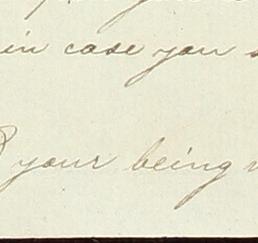 in case you
your being